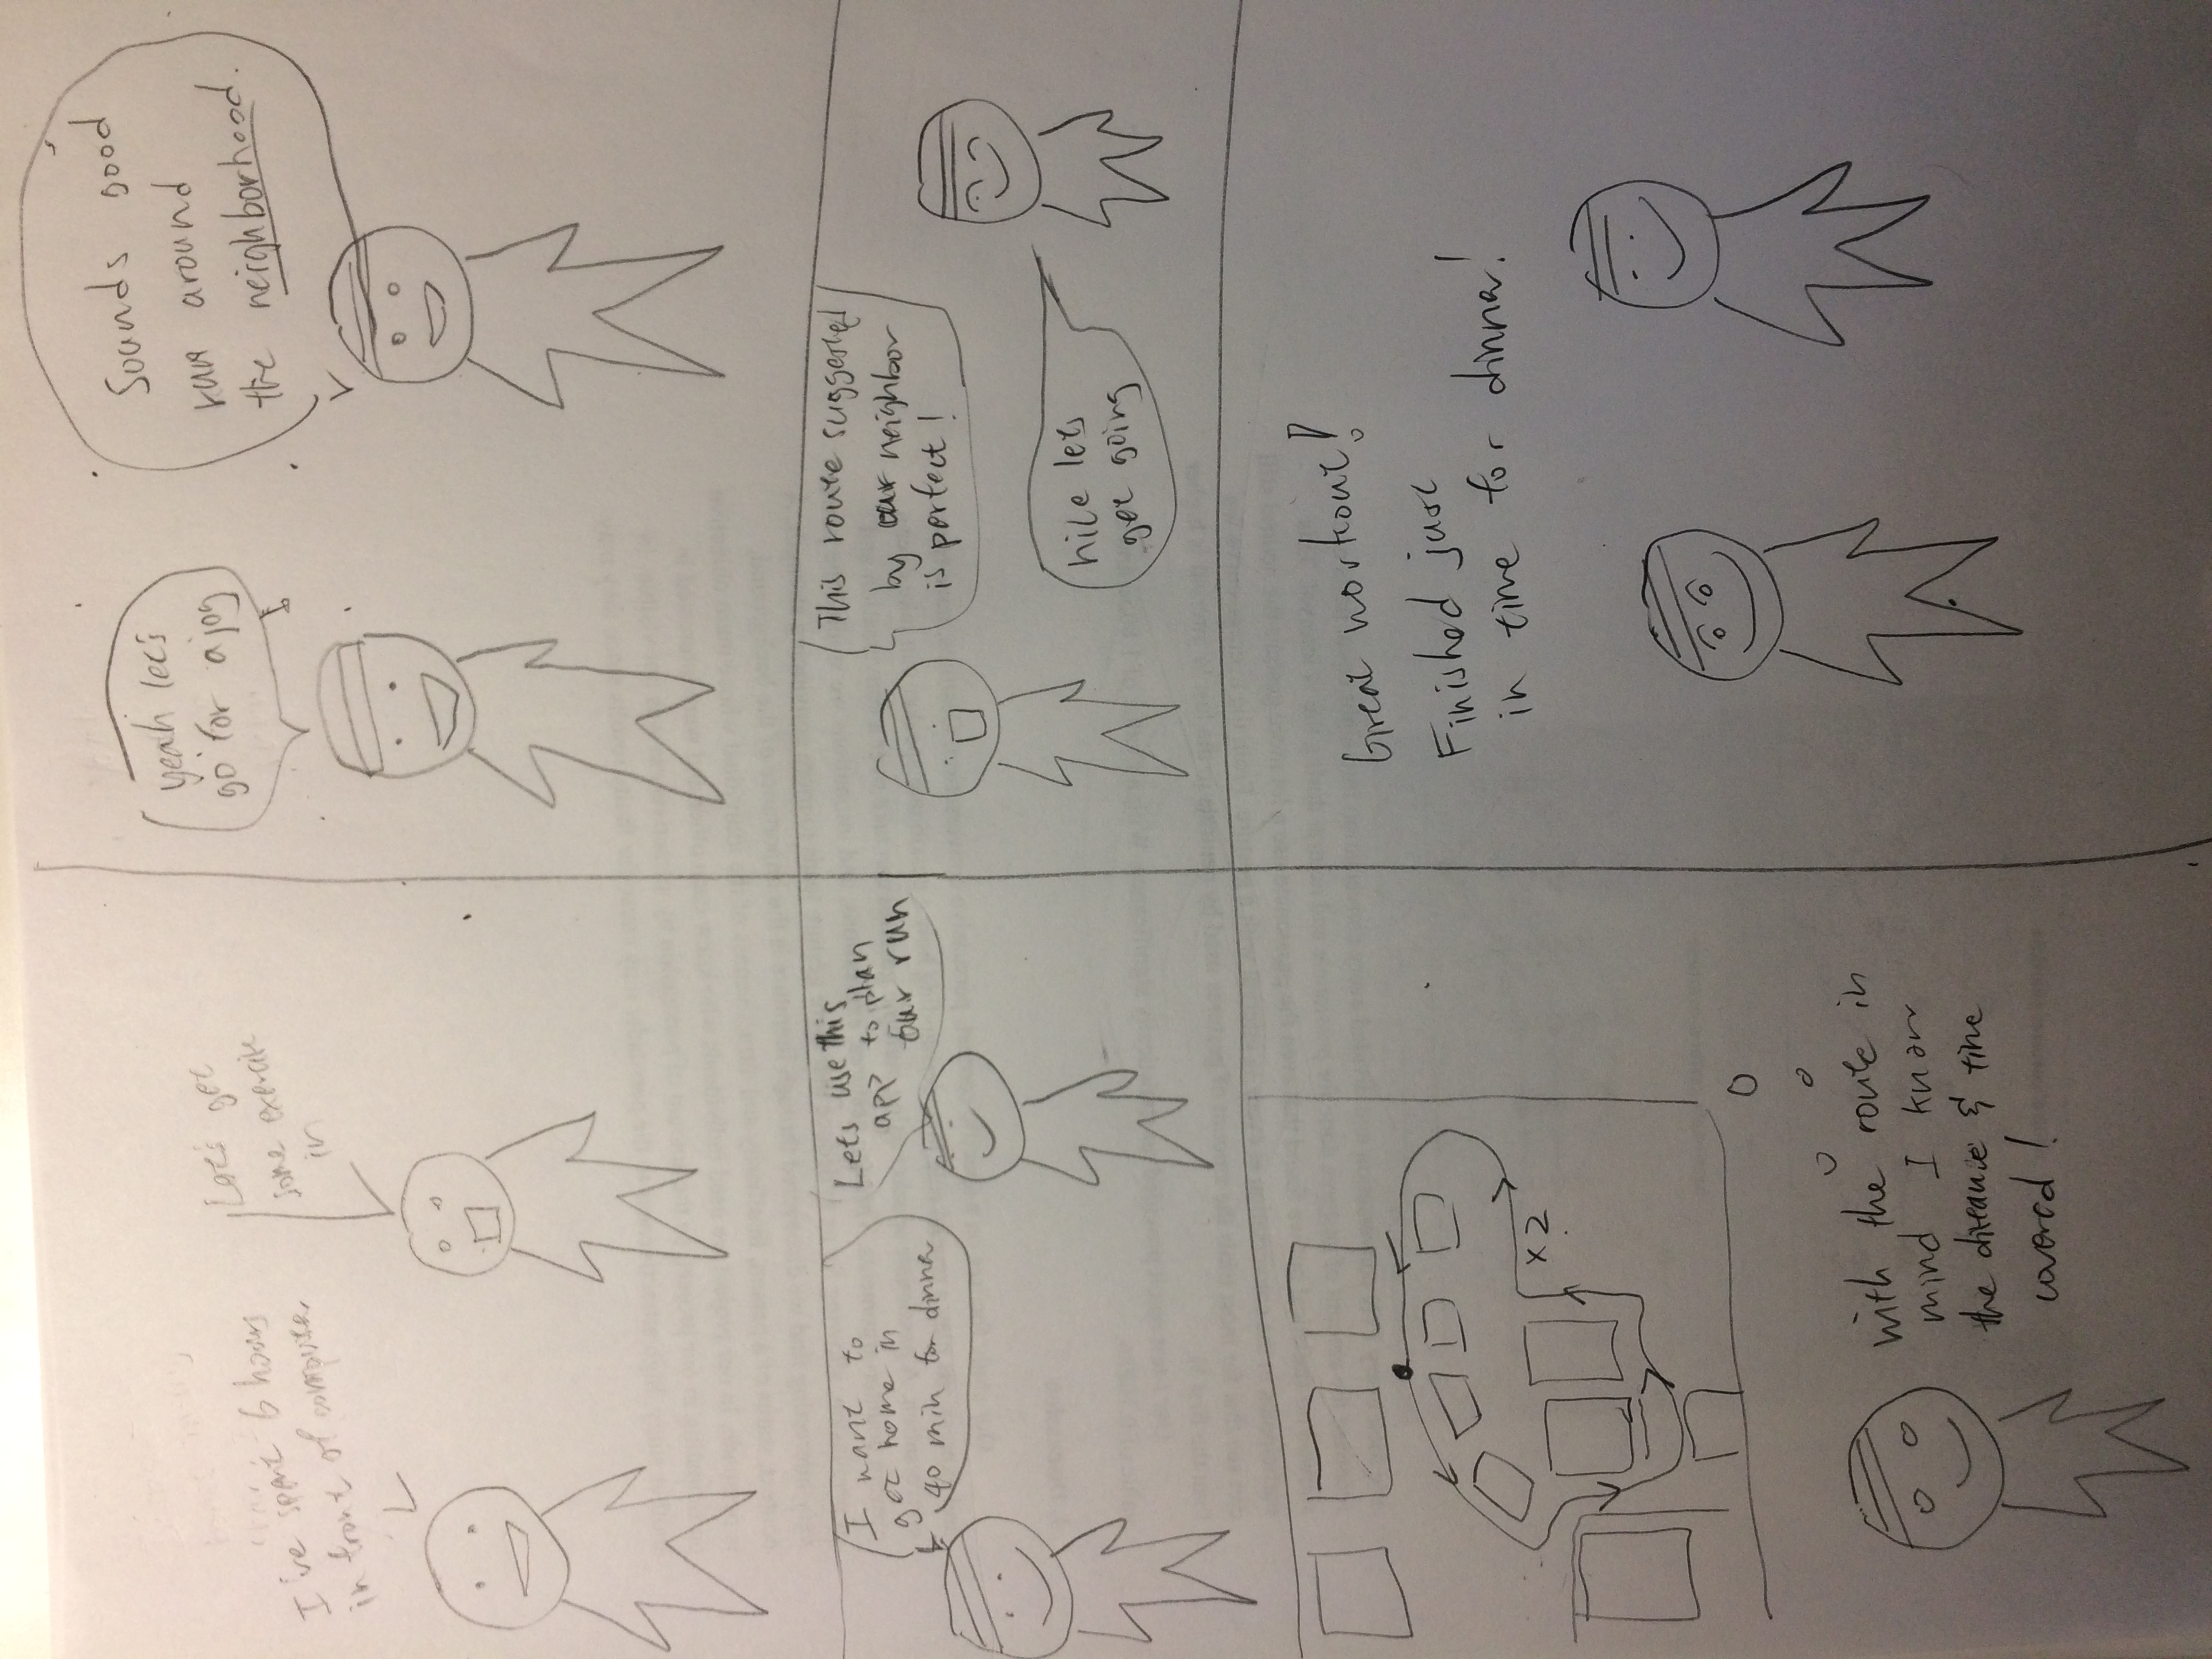 I've spent 6 hours
in front of computer
Let's get
some exercise
in
yeah let's
go for a jog
Sounds good
run around
the neighborhood.
I want to
get home in
40 min for dinner
Lets use this
app to plan
our run
This route suggested
by our neighbor
is perfect!
nice lets
get going
x2
with the route in
mind I know
the distance & time
covered!
Great workout!
Finished just
in time for dinner!